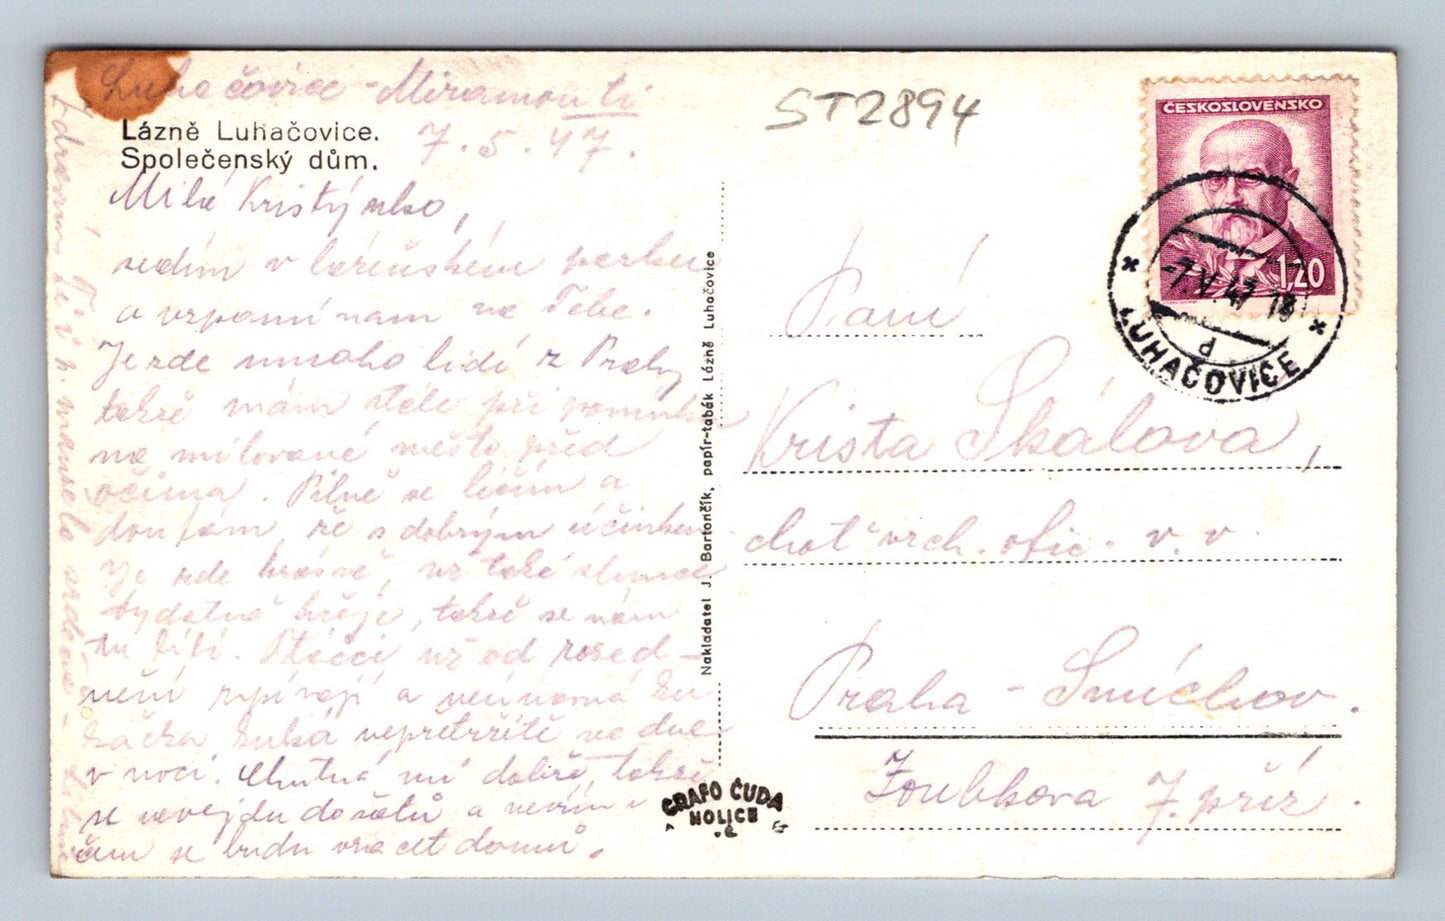 Luhačovice - Miramonti
7.5.47.
Lázně Luhačovice.
Společenský dům.
Milá Kristýnko,
sedím v lázeňském parku
a vzpomínám na Tebe.
Je zde mnoho lidí z Prahy
takže mám stále při pomínku
na milované město před
očima. Pilně se léčím a
doufám, že s dobrým účinkem.
Je zde krásně, už také slunce
vydatně hřeje, takže se nám
tu líbí. Ptáčci už od rozed-
nění zpívají a neúnavná ku
kačka kuká nepřetržitě ve dne
v noci. Chutná mi dobře, takže
se nevejdu do šatů a nevím v
čem se budu vracet domů.
Zdraví Tě i p. manžela srdečně
Nakladatel J. Bartončík, papír-tabák Lázně Luhačovice
GRAFO ČUDA
HOLICE
ST2894
ČESKOSLOVENSKO
1,20
-7.V.47 18
d
LUHAČOVICE
Paní
Krista Skálova,
choť vrch. ofic. v. v.
Praha - Smíchov.
Zoubkova 7. příz.